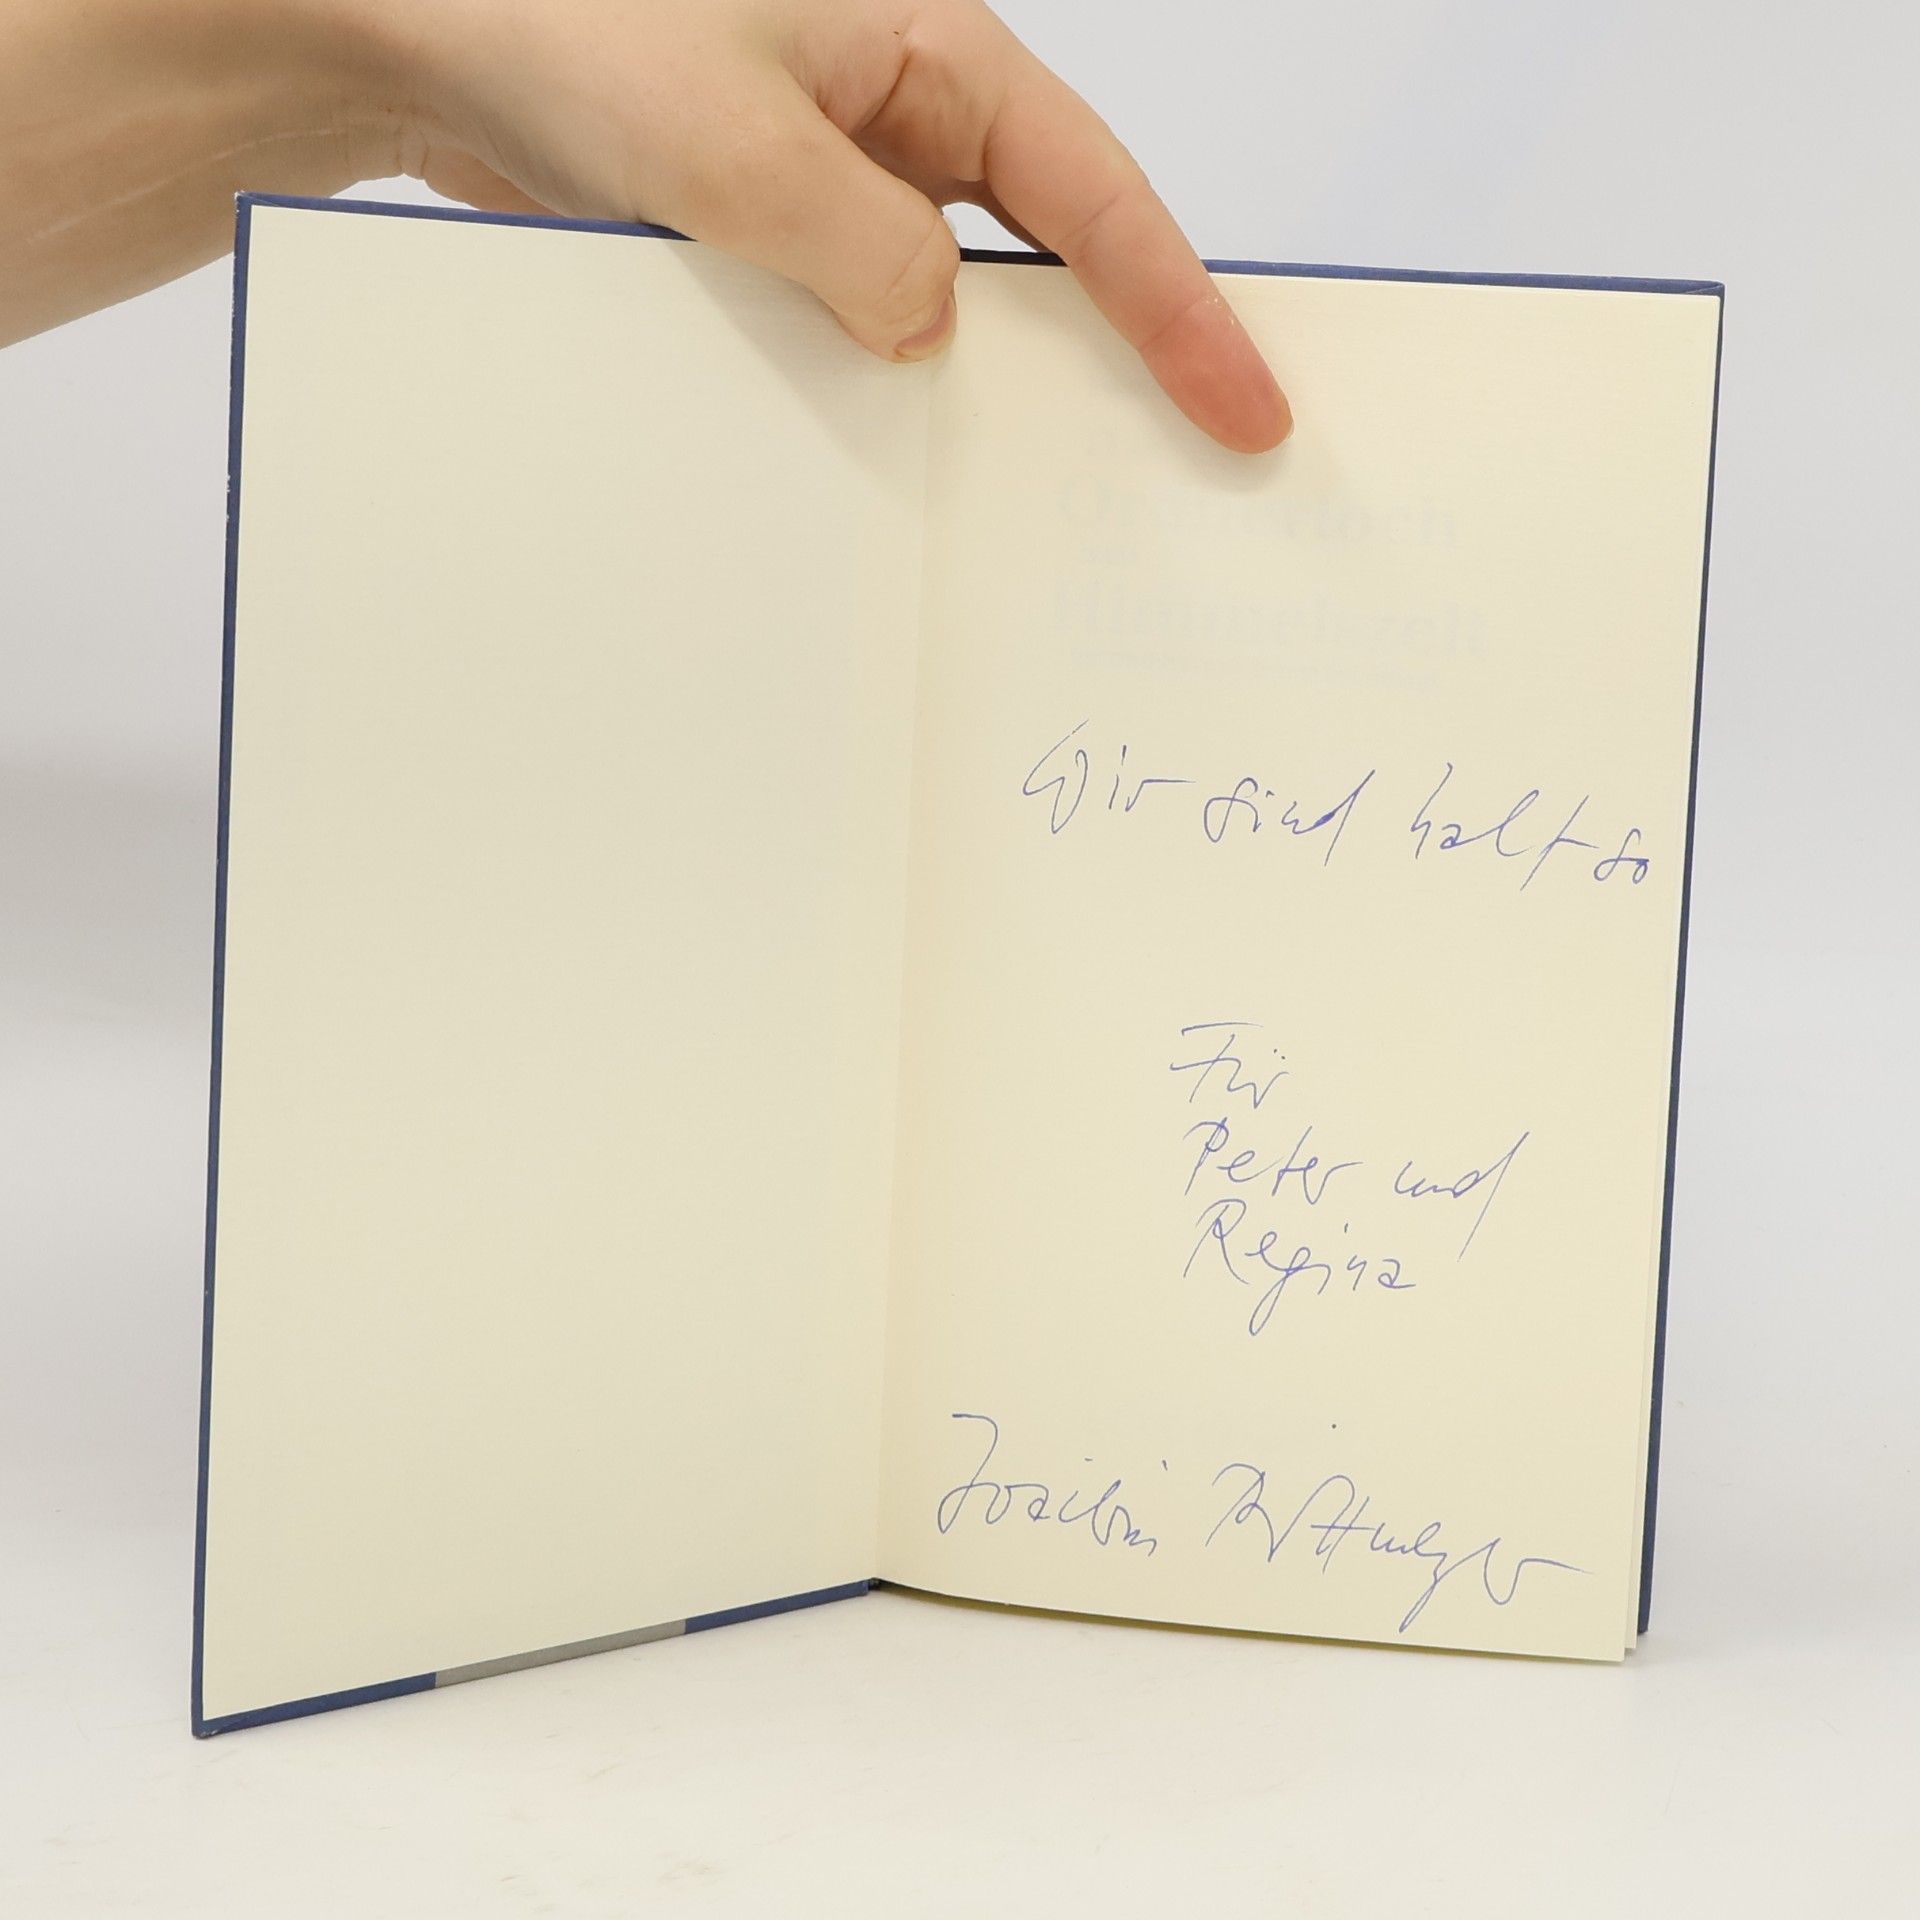 Wir sind halt so
Für
Peter und
Regina
Joachim